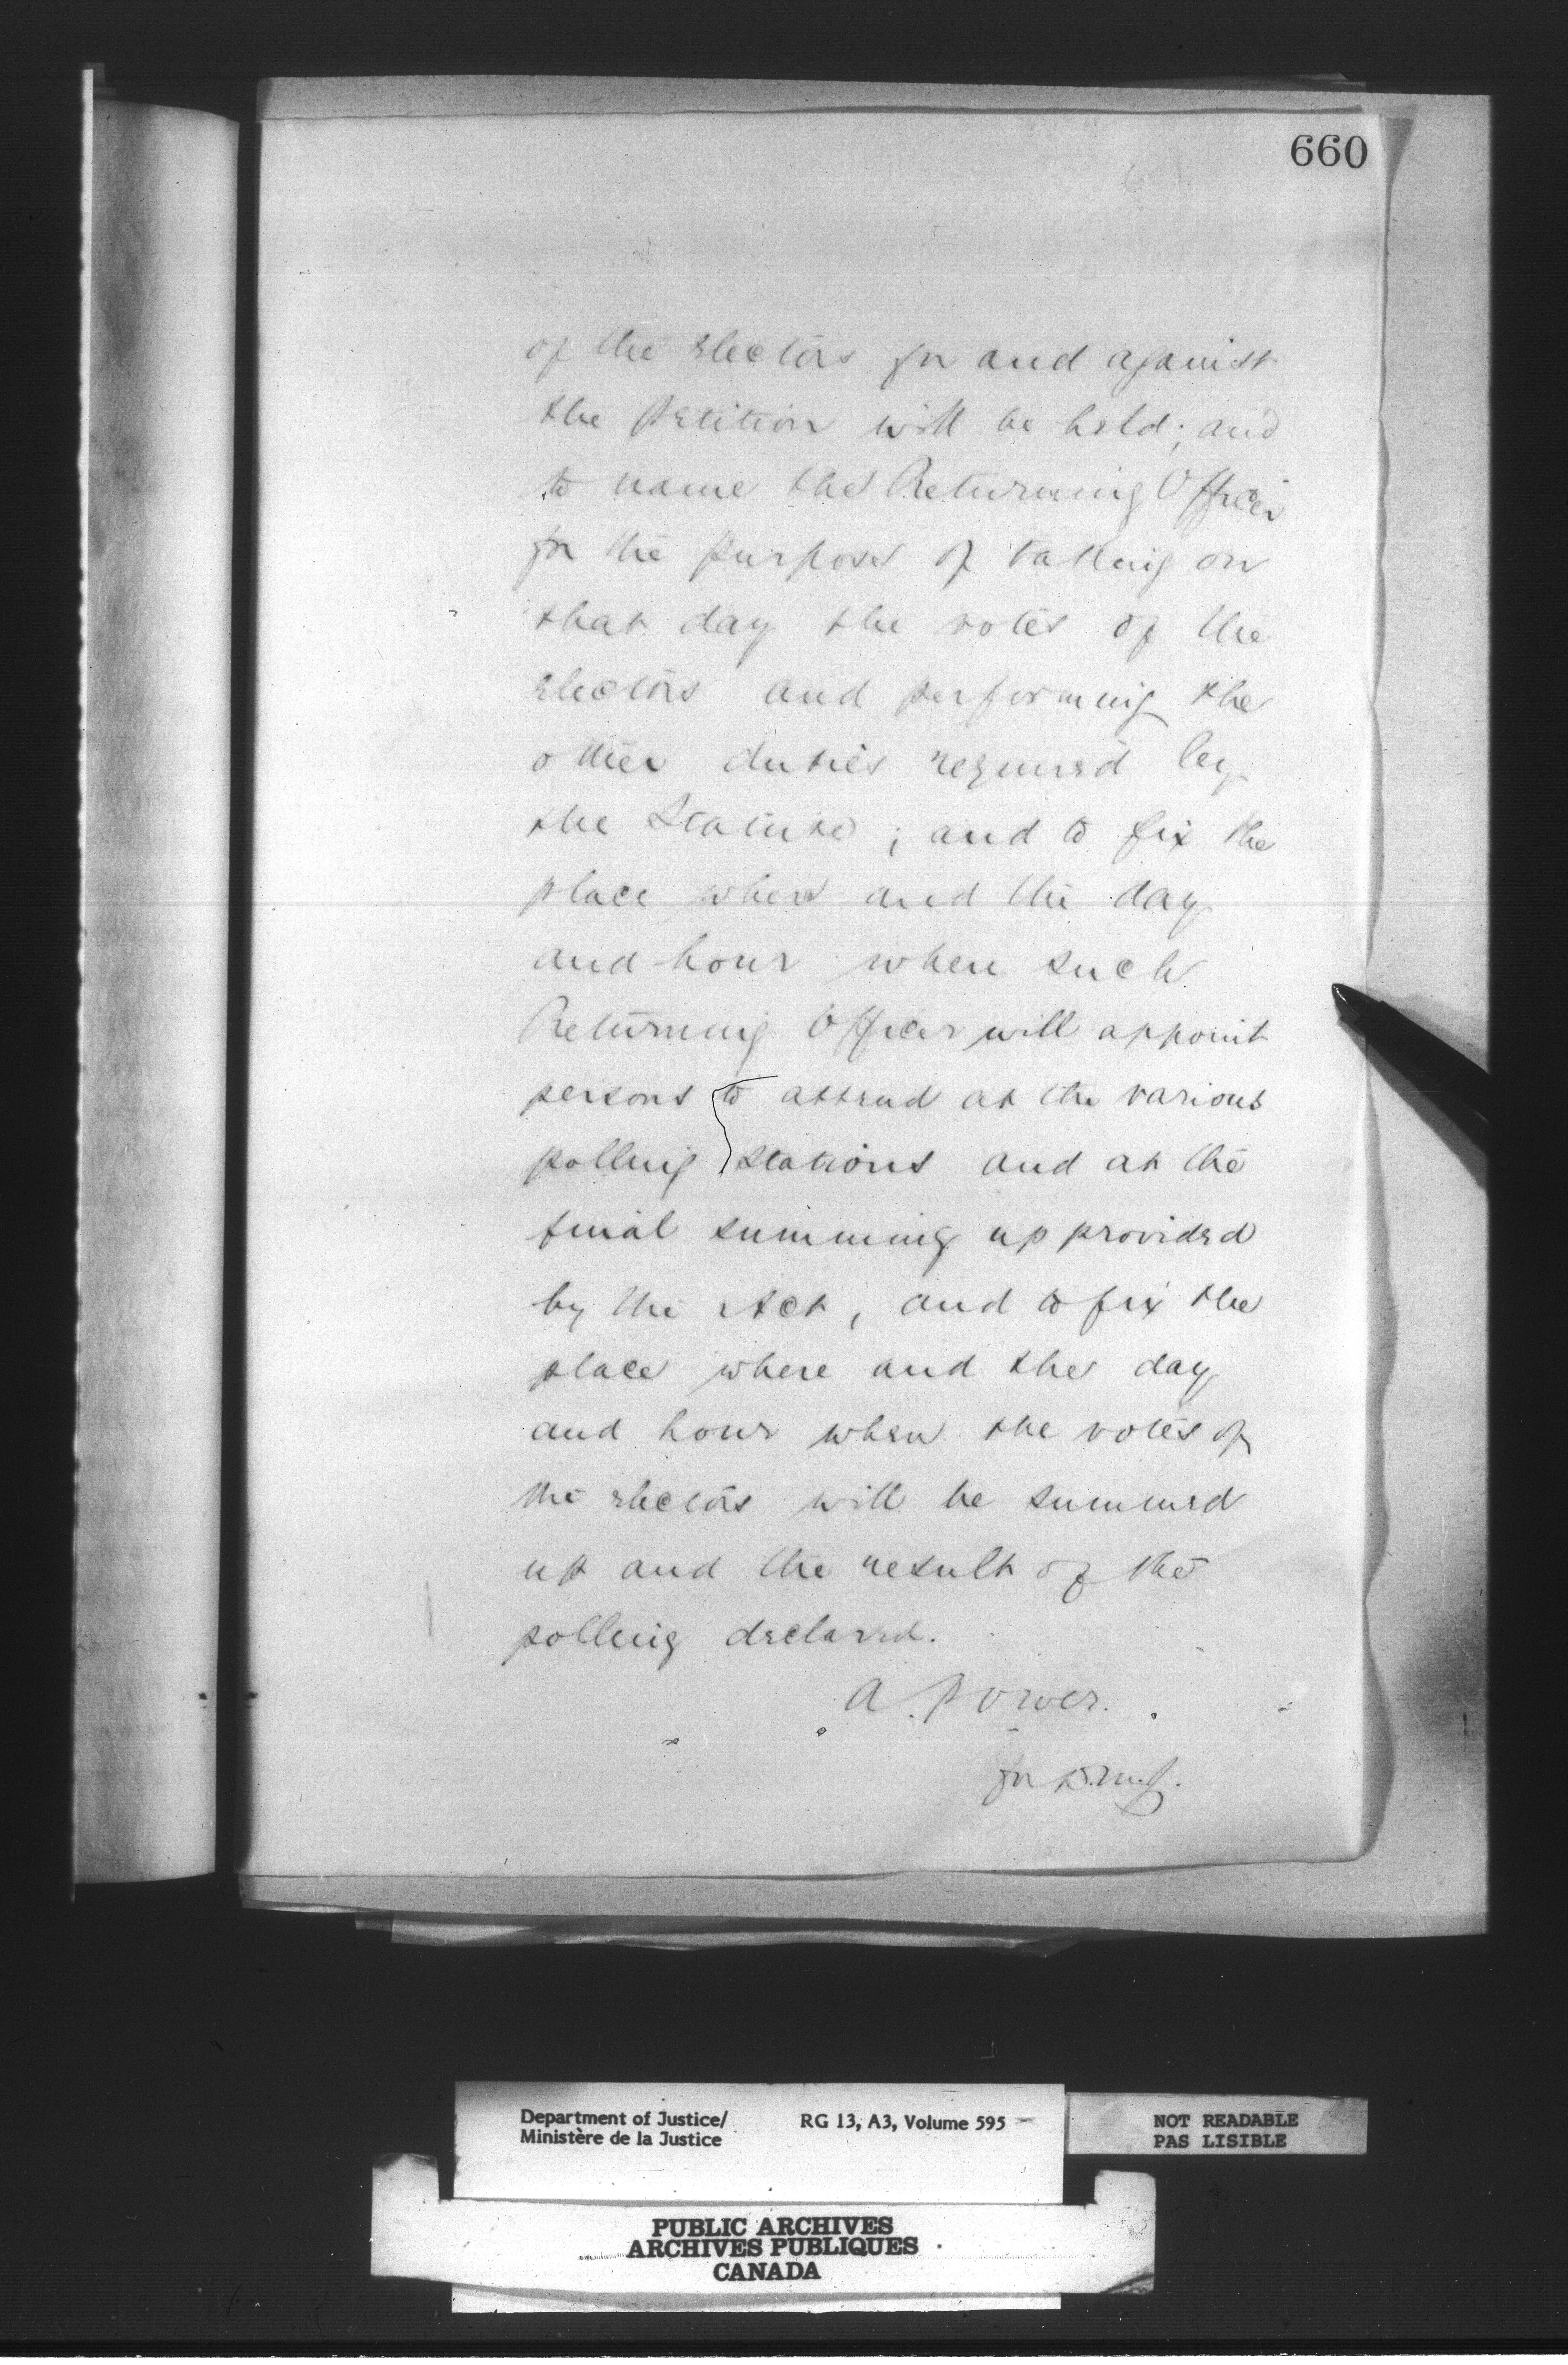 660
of the electors for and against
the Petition will be held; and
to name the Returning Officer
for the purpose of taking on
that day the votes of the
electors and performing the
other duties required by
the Statute; and to fix the
place where and the day
and hour when such
Returning Officer will appoint
persons to attend at the various
polling stations and at the
final summing up provided
by the Act, and to fix the
place where and the day
and hour when the votes of
the electors will be summed
up and the result of the
polling declared.
A. Power.
for D.M.J.
Department of Justice/ RG 13, A3, Volume 595
Ministère de la Justice
NOT READABLE
PAS LISIBLE
PUBLIC ARCHIVES
ARCHIVES PUBLIQUES
CANADA